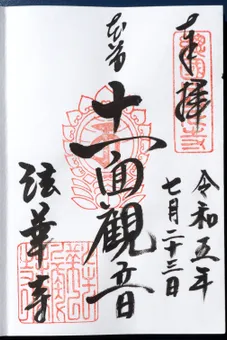 奉拝
令和五年
七月二十三日
本尊
十一面観音
法華寺